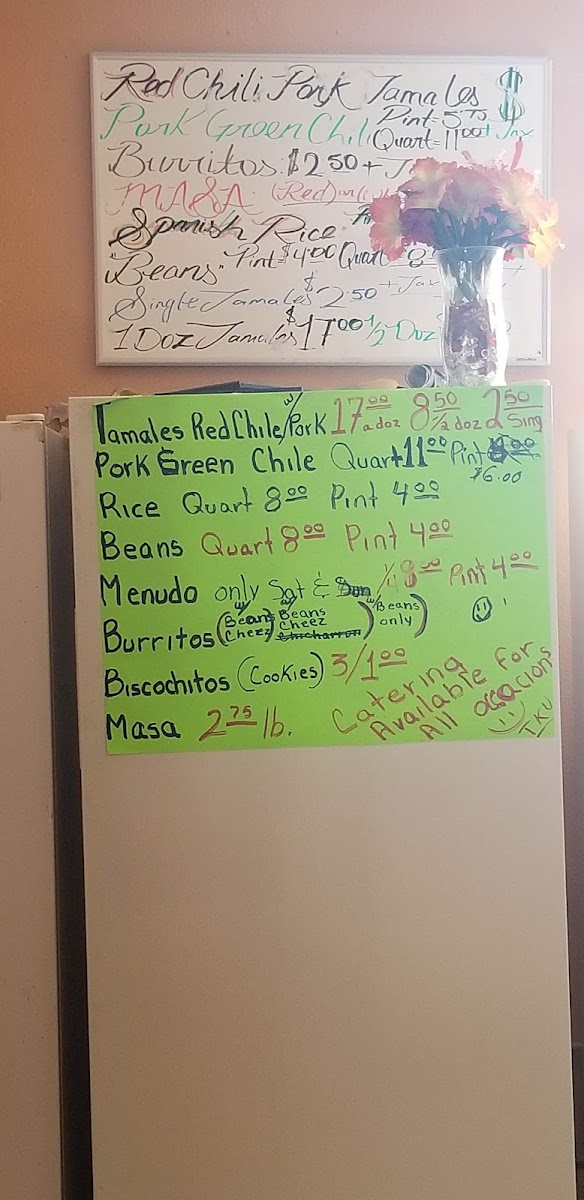 Red Chili Pork Tamales $
Pork Green Chili Pint=5 75
Quart=11 00 + Tax
Burritos $2 50 + Ta
MASA (Red)
Spanish Rice
"Beans" Pint $4.00 Quart 8
Single Tamales $2.50 + Tax
1 Doz Tamales $17 00 1/2 Doz
Tamales Red Chile w/ Pork 17 00 a doz 8 50 1/2 doz 2 50 Sing
Pork Green Chile Quart 11 00 Pint $6.00
Rice Quart 8 00 Pint 4 00
Beans Quart 8 00 Pint 4 00
Menudo only Sat & Sun 8 00 Pint 4 00
Burritos (Bean w/ Cheez) Beans w/ Cheez Chicharron) Beans only)
Biscochitos (Cookies) 3/1 00
Masa 2 75 lb.
Catering
Available for
All Occacions
TKU